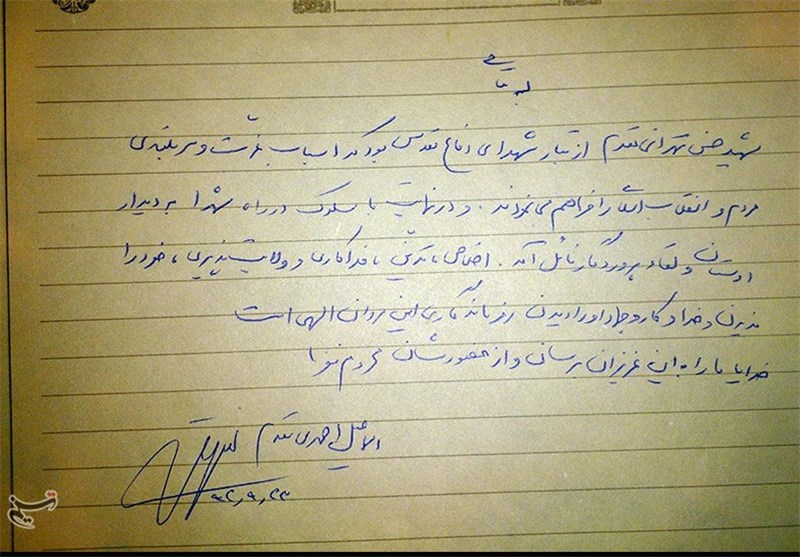 بسمه تعالی
شهید حسن تهرانی مقدم از تبار شهدای دفاع مقدس بود که اسباب عزت و سربلندی
مردم و انقلاب را فراهم می نمودند. و در نهایت با سلوک در راه شهدا به دیدار
دوستان و لقاء پروردگار نائل آمد. اخلاص، تدین، فداکاری و ولایت پذیری، خود را
ندیدن و خدا و کار و جهاد او را دیدن رمز ماندگاری این مردان الهی است
خدایا ما را به این عزیزان برسان و از حضورشان محروم نفرما
احمدی مقدم
۹۲,۹,۲۳
تسنیم